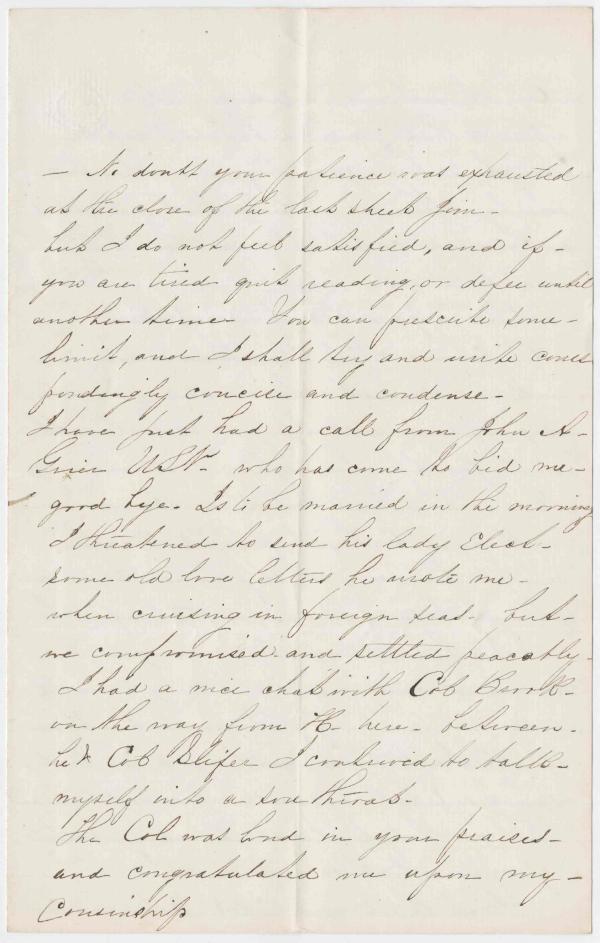 — No doubt your patience was exhausted
at the close of the last sheet Jim -
but I do not feel satisfied, and if -
you are tired quit reading, or defer until
another time - You can prescribe some -
limit, and I shall try and write corres
pondingly concise and condense -
I have just had a call from John A -
Grier USN - who has come to bid me -
good bye - Is to be married in the morning
I threatened to send his lady Elect -
some old love letters he wrote me -
when cruising in foreign seas - but -
we compromised and settled peacably -
I had a nice chat with Col Brook -
on the way from H - here - between -
he & Col Slifer I contrived to talk -
myself into a sore throat -
The Col was loud in your praises -
and congratulated me upon my -
Cousinship